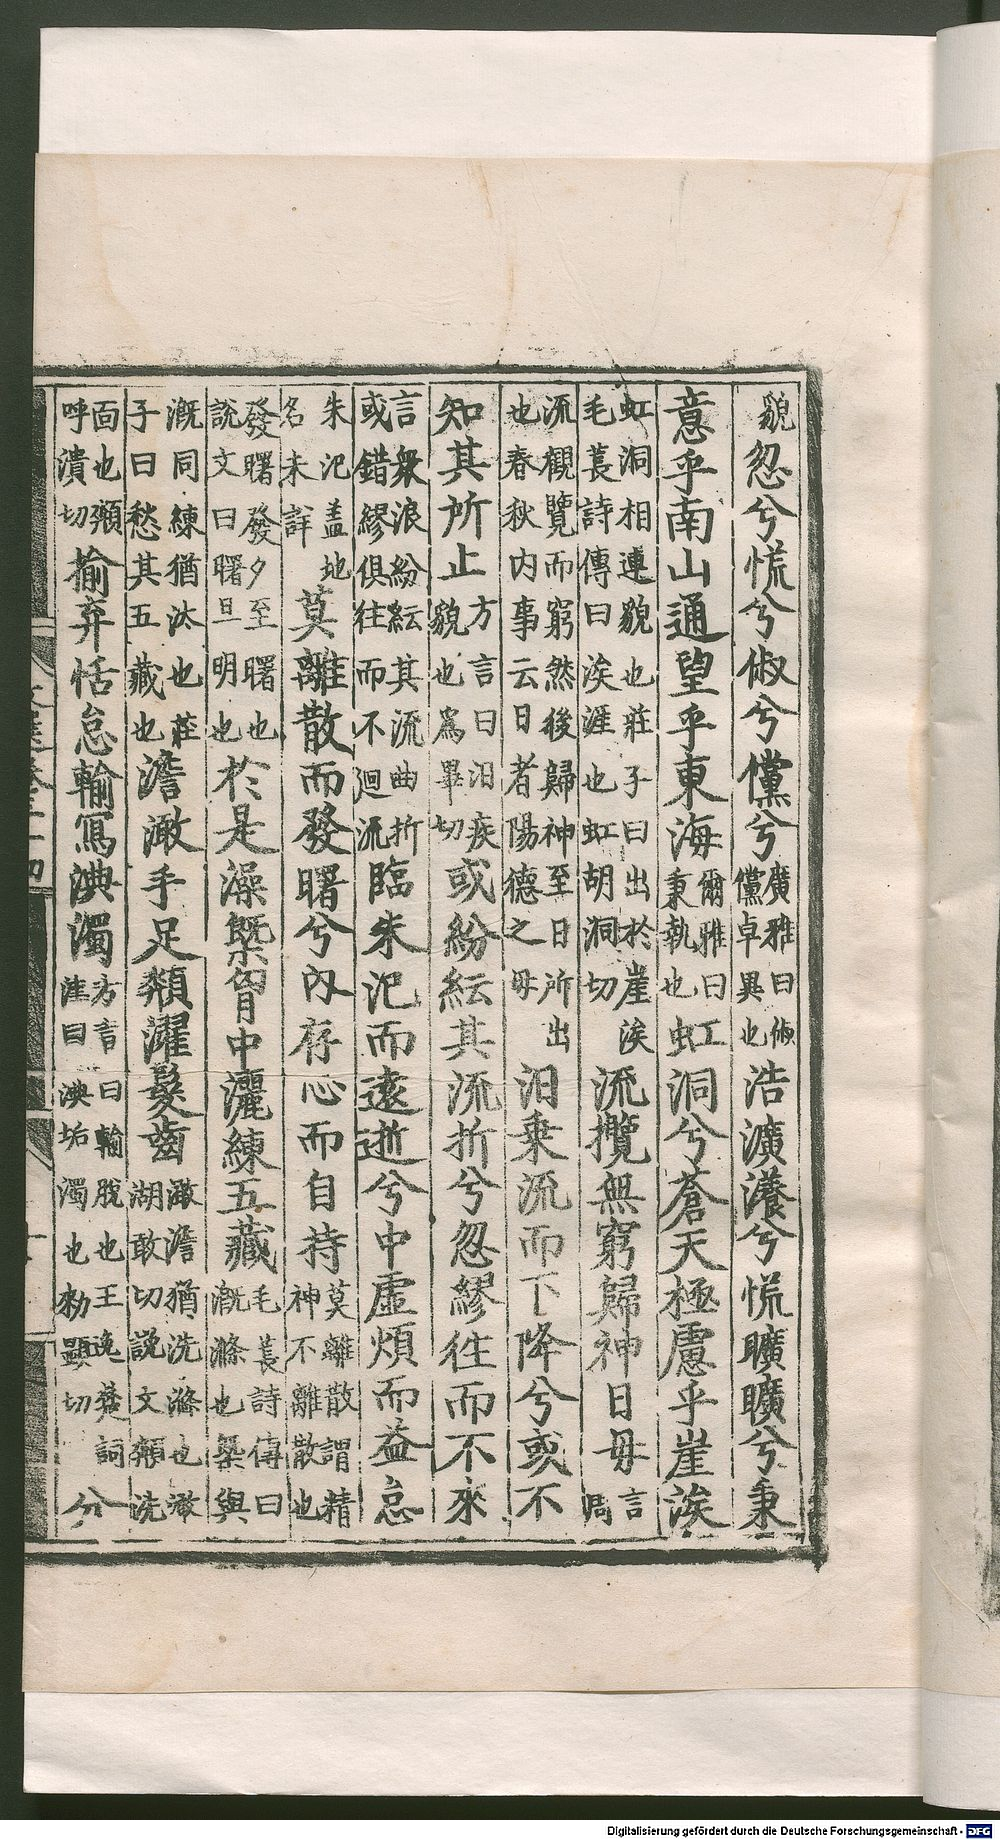 貌忽兮慌兮俶兮儻兮廣雅曰俶儻卓異也浩瀇瀁兮慌曠曠兮秉
意乎南山通望乎東海爾雅曰秉執也虹洞兮蒼天極慮乎崖涘
虹洞相連貌也莊子曰出於崖涘毛萇詩傳曰涘涯也虹胡洞切流攬無窮歸神日母言周
流觀覽而窮然後歸神至日所出也春秋内事云日者陽德之母汩乗流而下降兮或不
知其所止方言曰汨疾貌也爲畢切或紛紜其流折兮忽繆徃而不來
言衆浪紛紜其流曲折或錯繆俱往而不迴流臨朱汜而逺逝兮中虚煩而益怠
朱汜盖地名未詳莫離散而發曙兮内存心而自持莫離散謂精神不離散也
發曙發夕至曙也説文曰曙旦明也於是澡槩胷中灑練五藏毛萇詩傳曰漑滌也槩與
漑同練猶汰也莊子曰愁其五藏也澹澉手足頮濯髮齒澉澹猶洗滌也澉湖敢切説文頮洗
面也頮呼潰切揄弃恬怠輸寫淟濁方言曰輸脫也王逸楚詞注曰淟垢濁也勑顯切分
Digitalisierung gefördert durch die Deutsche Forschungsgemeinschaft - DFG